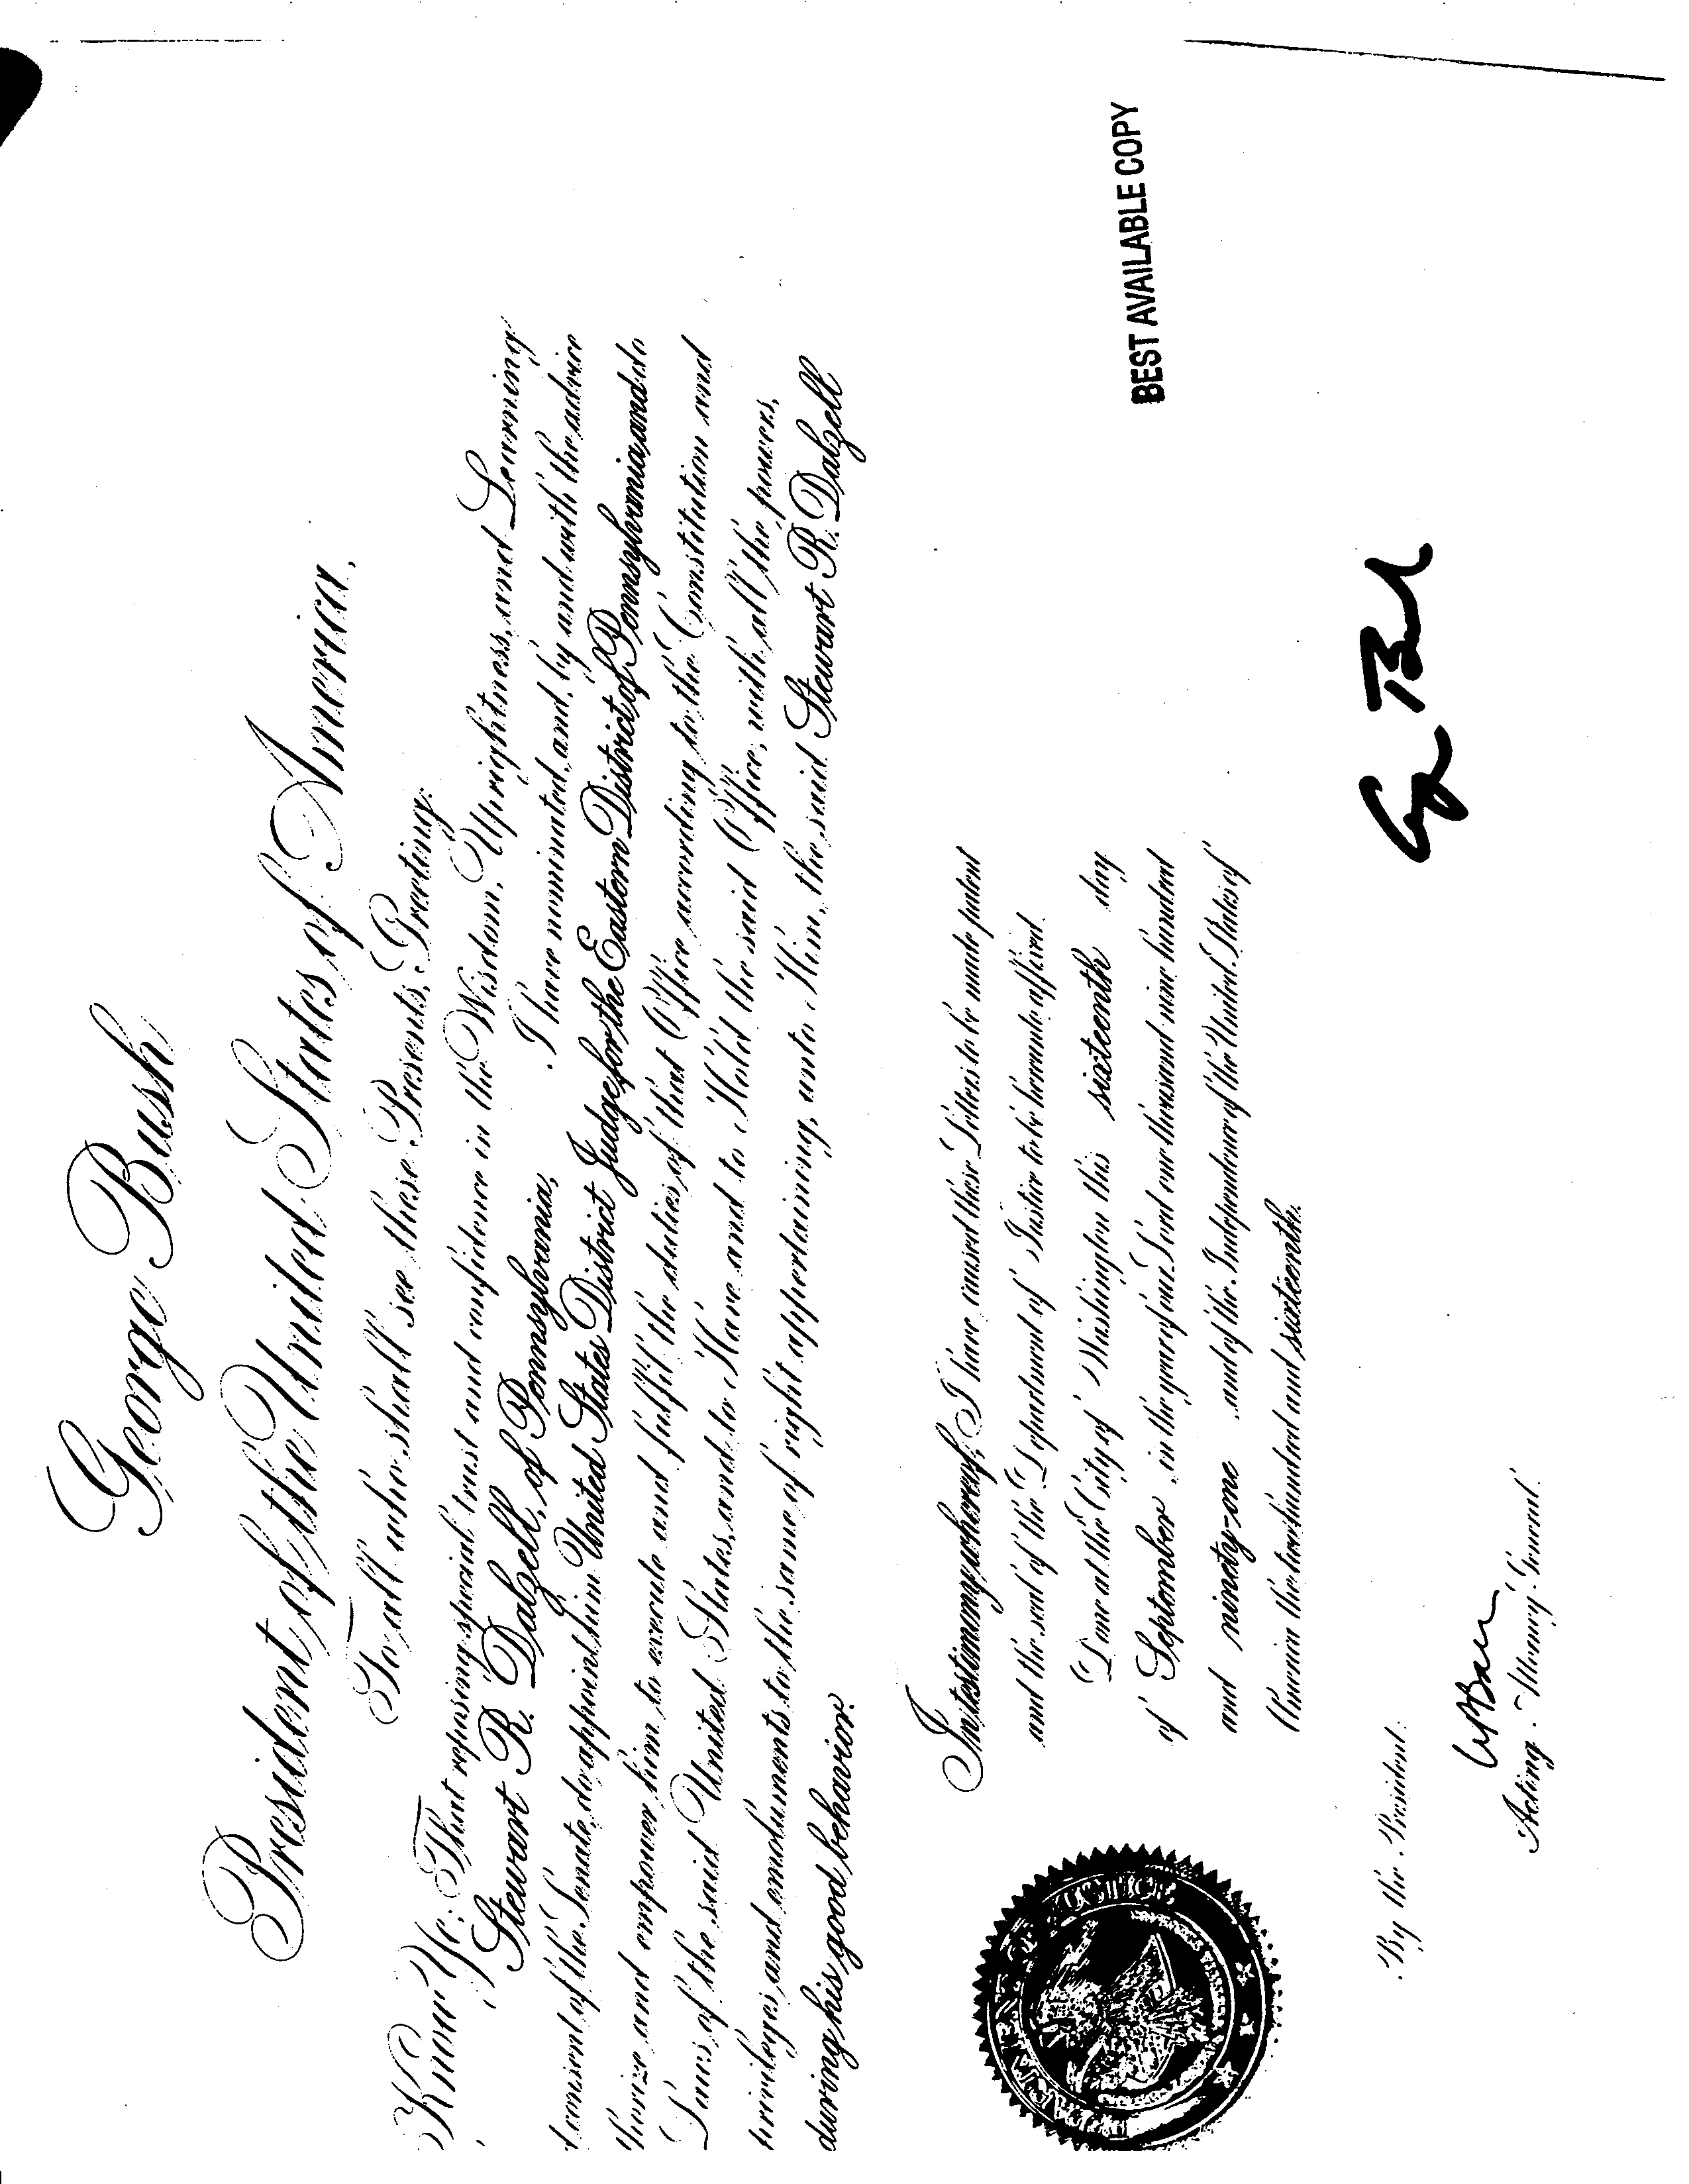 George Bush
President of the United States of America,
To all who shall see these Presents, Greeting:
Know Ye: That reposing special trust and confidence in the Wisdom, Uprightness, and Learning
Stewart R. Dalzell, of Pennsylvania, I have nominated, and, by and with the advice
consent of the Senate, do appoint him United States District Judge for the Eastern District of Pennsylvania, and do
thorize and empower him to execute and fulfil the duties of that Office according to the Constitution and
Laws of the said United States, and to Have and to Hold the said Office, with all the powers,
privileges, and emoluments to the same of right appertaining, unto Him, the said Stewart R. Dalzell
during his good behavior.
In testimony whereof, I have caused these Letters to be made patent
and the seal of the Department of Justice to be hereunto affixed.
Done at the City of Washington this sixteenth day
of September, in the year of our Lord one thousand nine hundred
and ninety-one, and of the Independence of the United States of
America the two hundred and sixteenth.
BEST AVAILABLE COPY
Gg Bush
By the President:
W Barr
Acting Attorney General.
DEPARTMENT OF JUSTICE